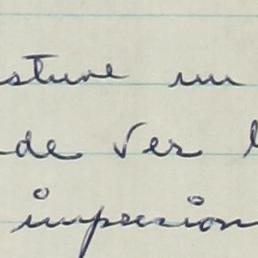 sture un
de ver l
impresion